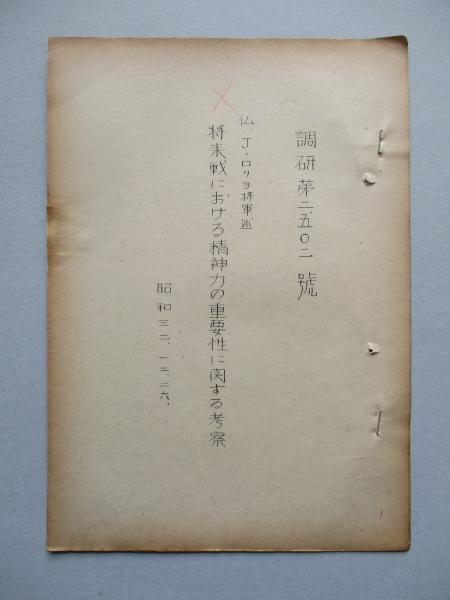 調研第二五〇二號
仏、J・ロリヨ将軍述
将来戦における精神力の重要性に関する考察
昭和三二、一二、二六、